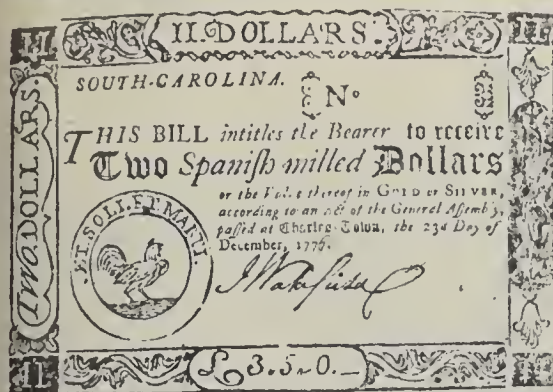 II
II. DOLLARS.
II
SOUTH-CAROLINA.
No
THIS BILL intitles the Bearer to receive
Two Spaniſh milled Dollars
or the Value thereof in GOLD or SILVER,
according to an Act of the General Aſſembly,
paſſed at Charles-Town, the 23d Day of
December, 1776.
TWO DOLLARS.
ET. SOLI. ET. MARTI.
£3.5.0.
II
II